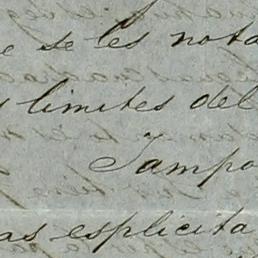 e se les nota
limites del
Tampo
as esplicita